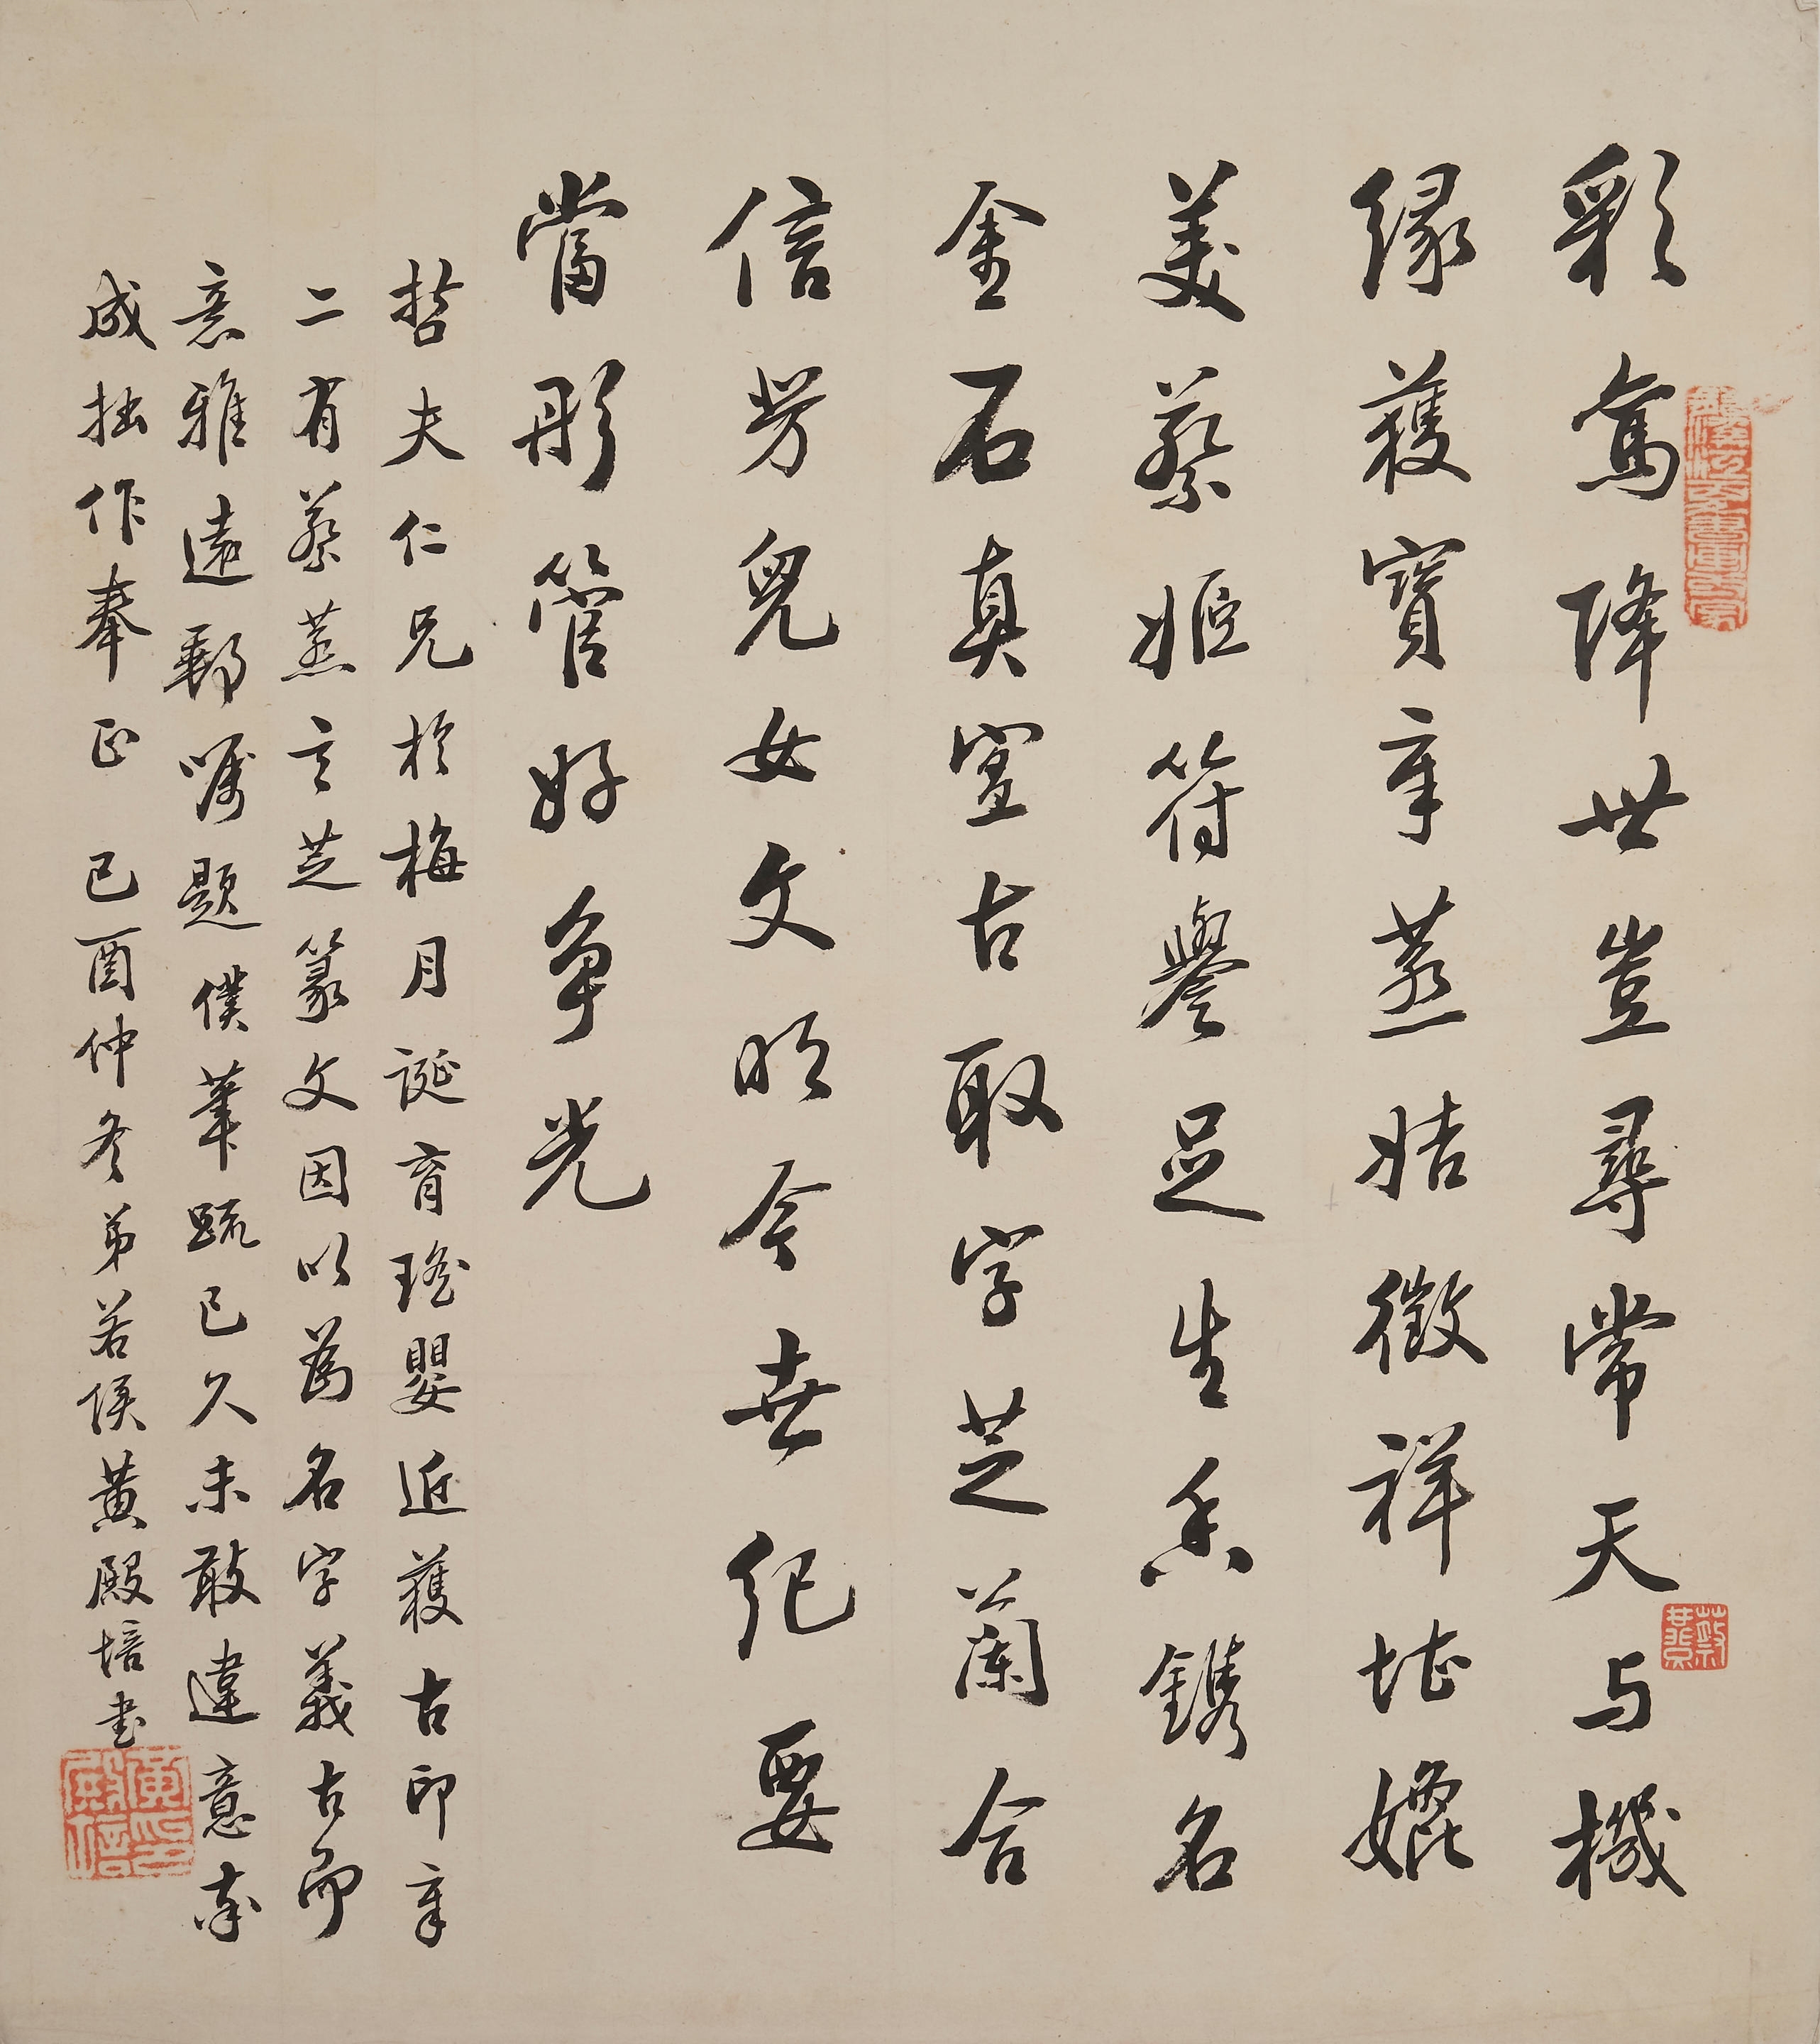 彩鸞降世豈尋常天与機
緣獲寶章蒸姞徵祥堪媲
美蔡姬符譽足生香鐫名
金石真宜古取字芝蘭合
信芳兒女文明今世紀要
當彤管好争光
哲夫仁兄於梅月誕育瑤嬰近獲古印章
二有蔡蒸二芝篆文因以爲名字義古而
意雅遠郵嘱題僕筆疏已久未敢違意率
成拙作奉正 己酉仲冬弟若侯黄殿培書
蔡蒸